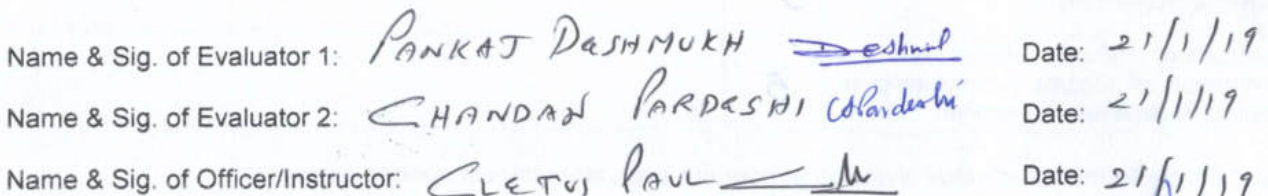 Name & Sig. of Evaluator 1: PANKAJ DESHMUKH Deshmul Date: 21/1/19
Name & Sig. of Evaluator 2: CHANDAN PARDESHI CSPardeshi Date: 21/1/19
Name & Sig. of Officer/Instructor: CLETUS PAUL Date: 21/1/19